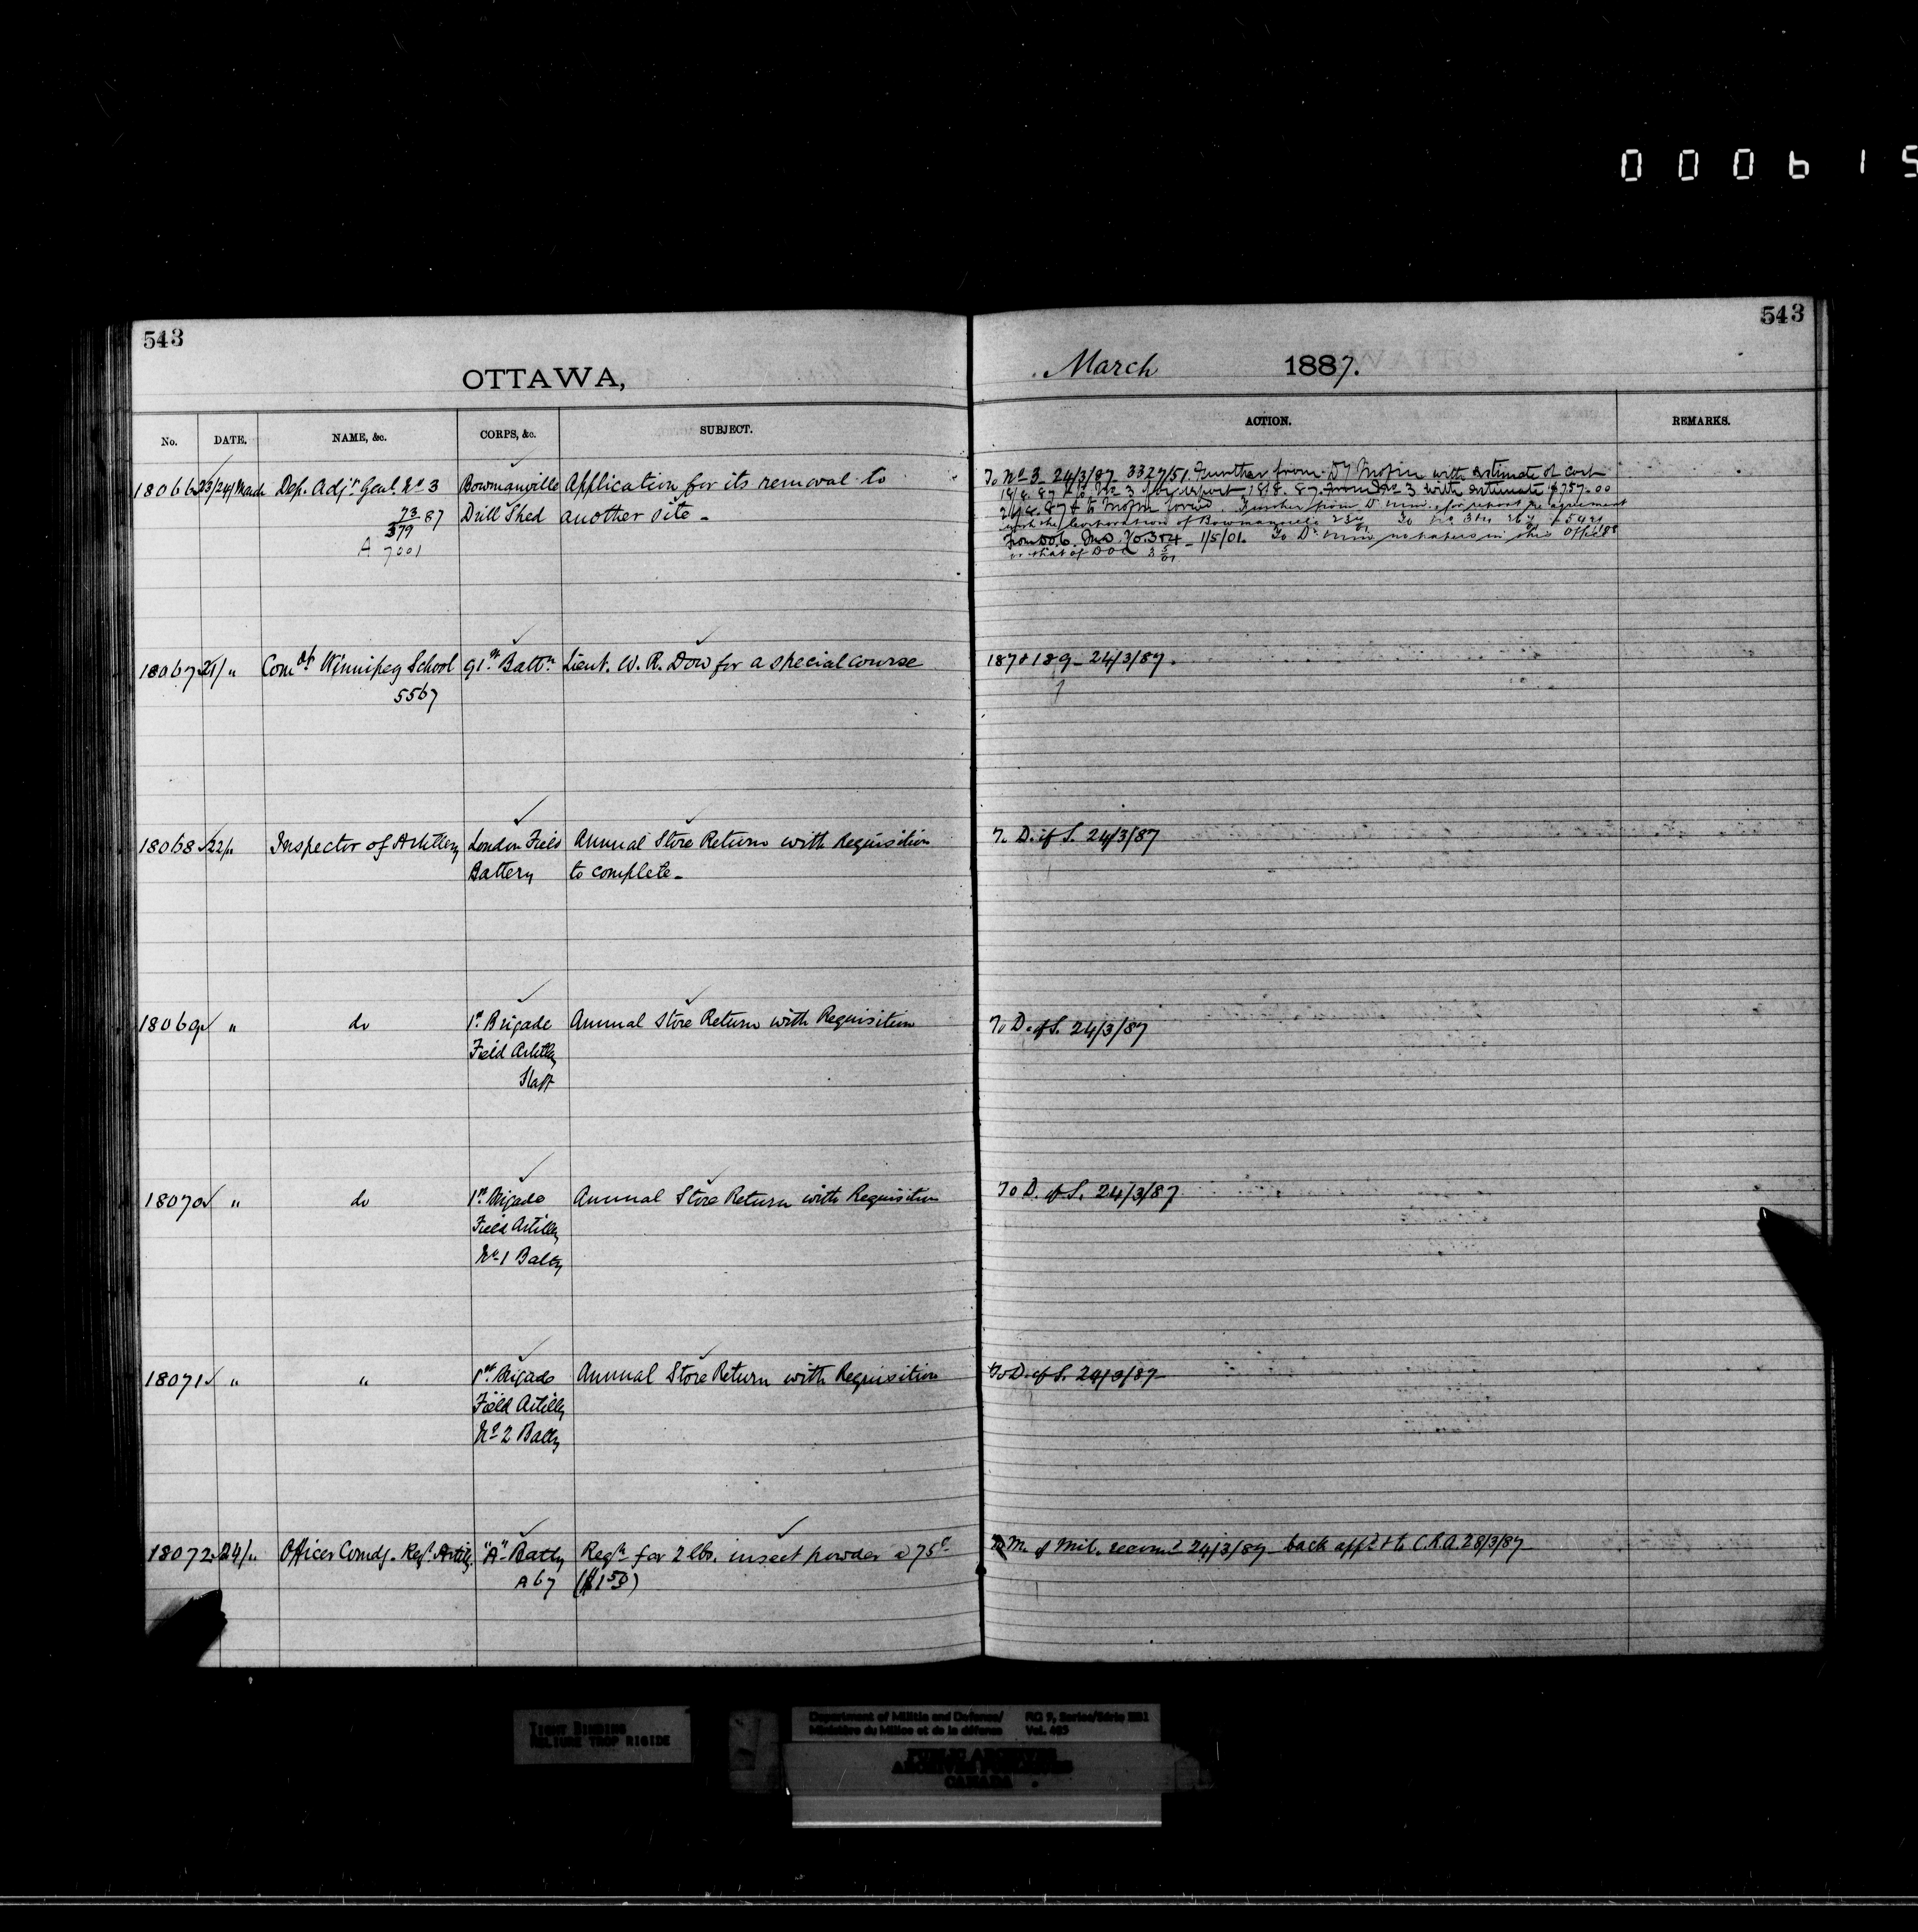 000615
543
543
OTTAWA,
March 1887.
No. DATE. NAME, &c. CORPS, &c. SUBJECT. ACTION. REMARKS.
18066 23/24/March Dep. Adjt Genl No 3 Bowmanville Application for its removal to
73 87 Drill Shed another site -
379
A 7001
To No 3 24/3/87 3327/51 Further from D of Mofin with estimate of cost
18/8. 87 & to No 3 for report 18/8. 87. From No 3 with estimate $757.00
with the Corporation of Bowmanville
1/5/01. To no papers in this Office
18067 21/ " Comdt Winnipeg School 91st Battn Lieut. W. R. Dow for a special course 187 & 189 - 24/3/87.
5567
18068 22/" Inspector of Artillery London Field Annual Store Return with Requisition To D. of S. 24/3/87
Battery to complete -
18069 " do 1st Brigade Annual Store Return with Requisition To D. of S. 24/3/87
Field Artilly
Staff
18070 " do 1st Brigade Annual Store Return with Requisition To D. of S. 24/3/87
Field Artilly
No 1 Batty
18071 " " 1st Brigade Annual Store Return with Requisition To D. of S. 24/3/87
Field Artilly
No 2 Batty
18072 24/" Officer Comdg. Regt. Artilly "A" Batty Reqn for 2 lbs. insect powder @ 75c To M. of Mil. recomd 24/3/87 - back appd & to C.R.A. 28/3/87
A67 ($1 50)
TIGHT BINDING
RELIURE TROP RIGIDE
Department of Militia and Defence/ RG 9, Series/Série IIB1
Ministère du Milice et de la défense Vol. 485
PUBLIC ARCHIVES
ARCHIVES PUBLIQUES
CANADA